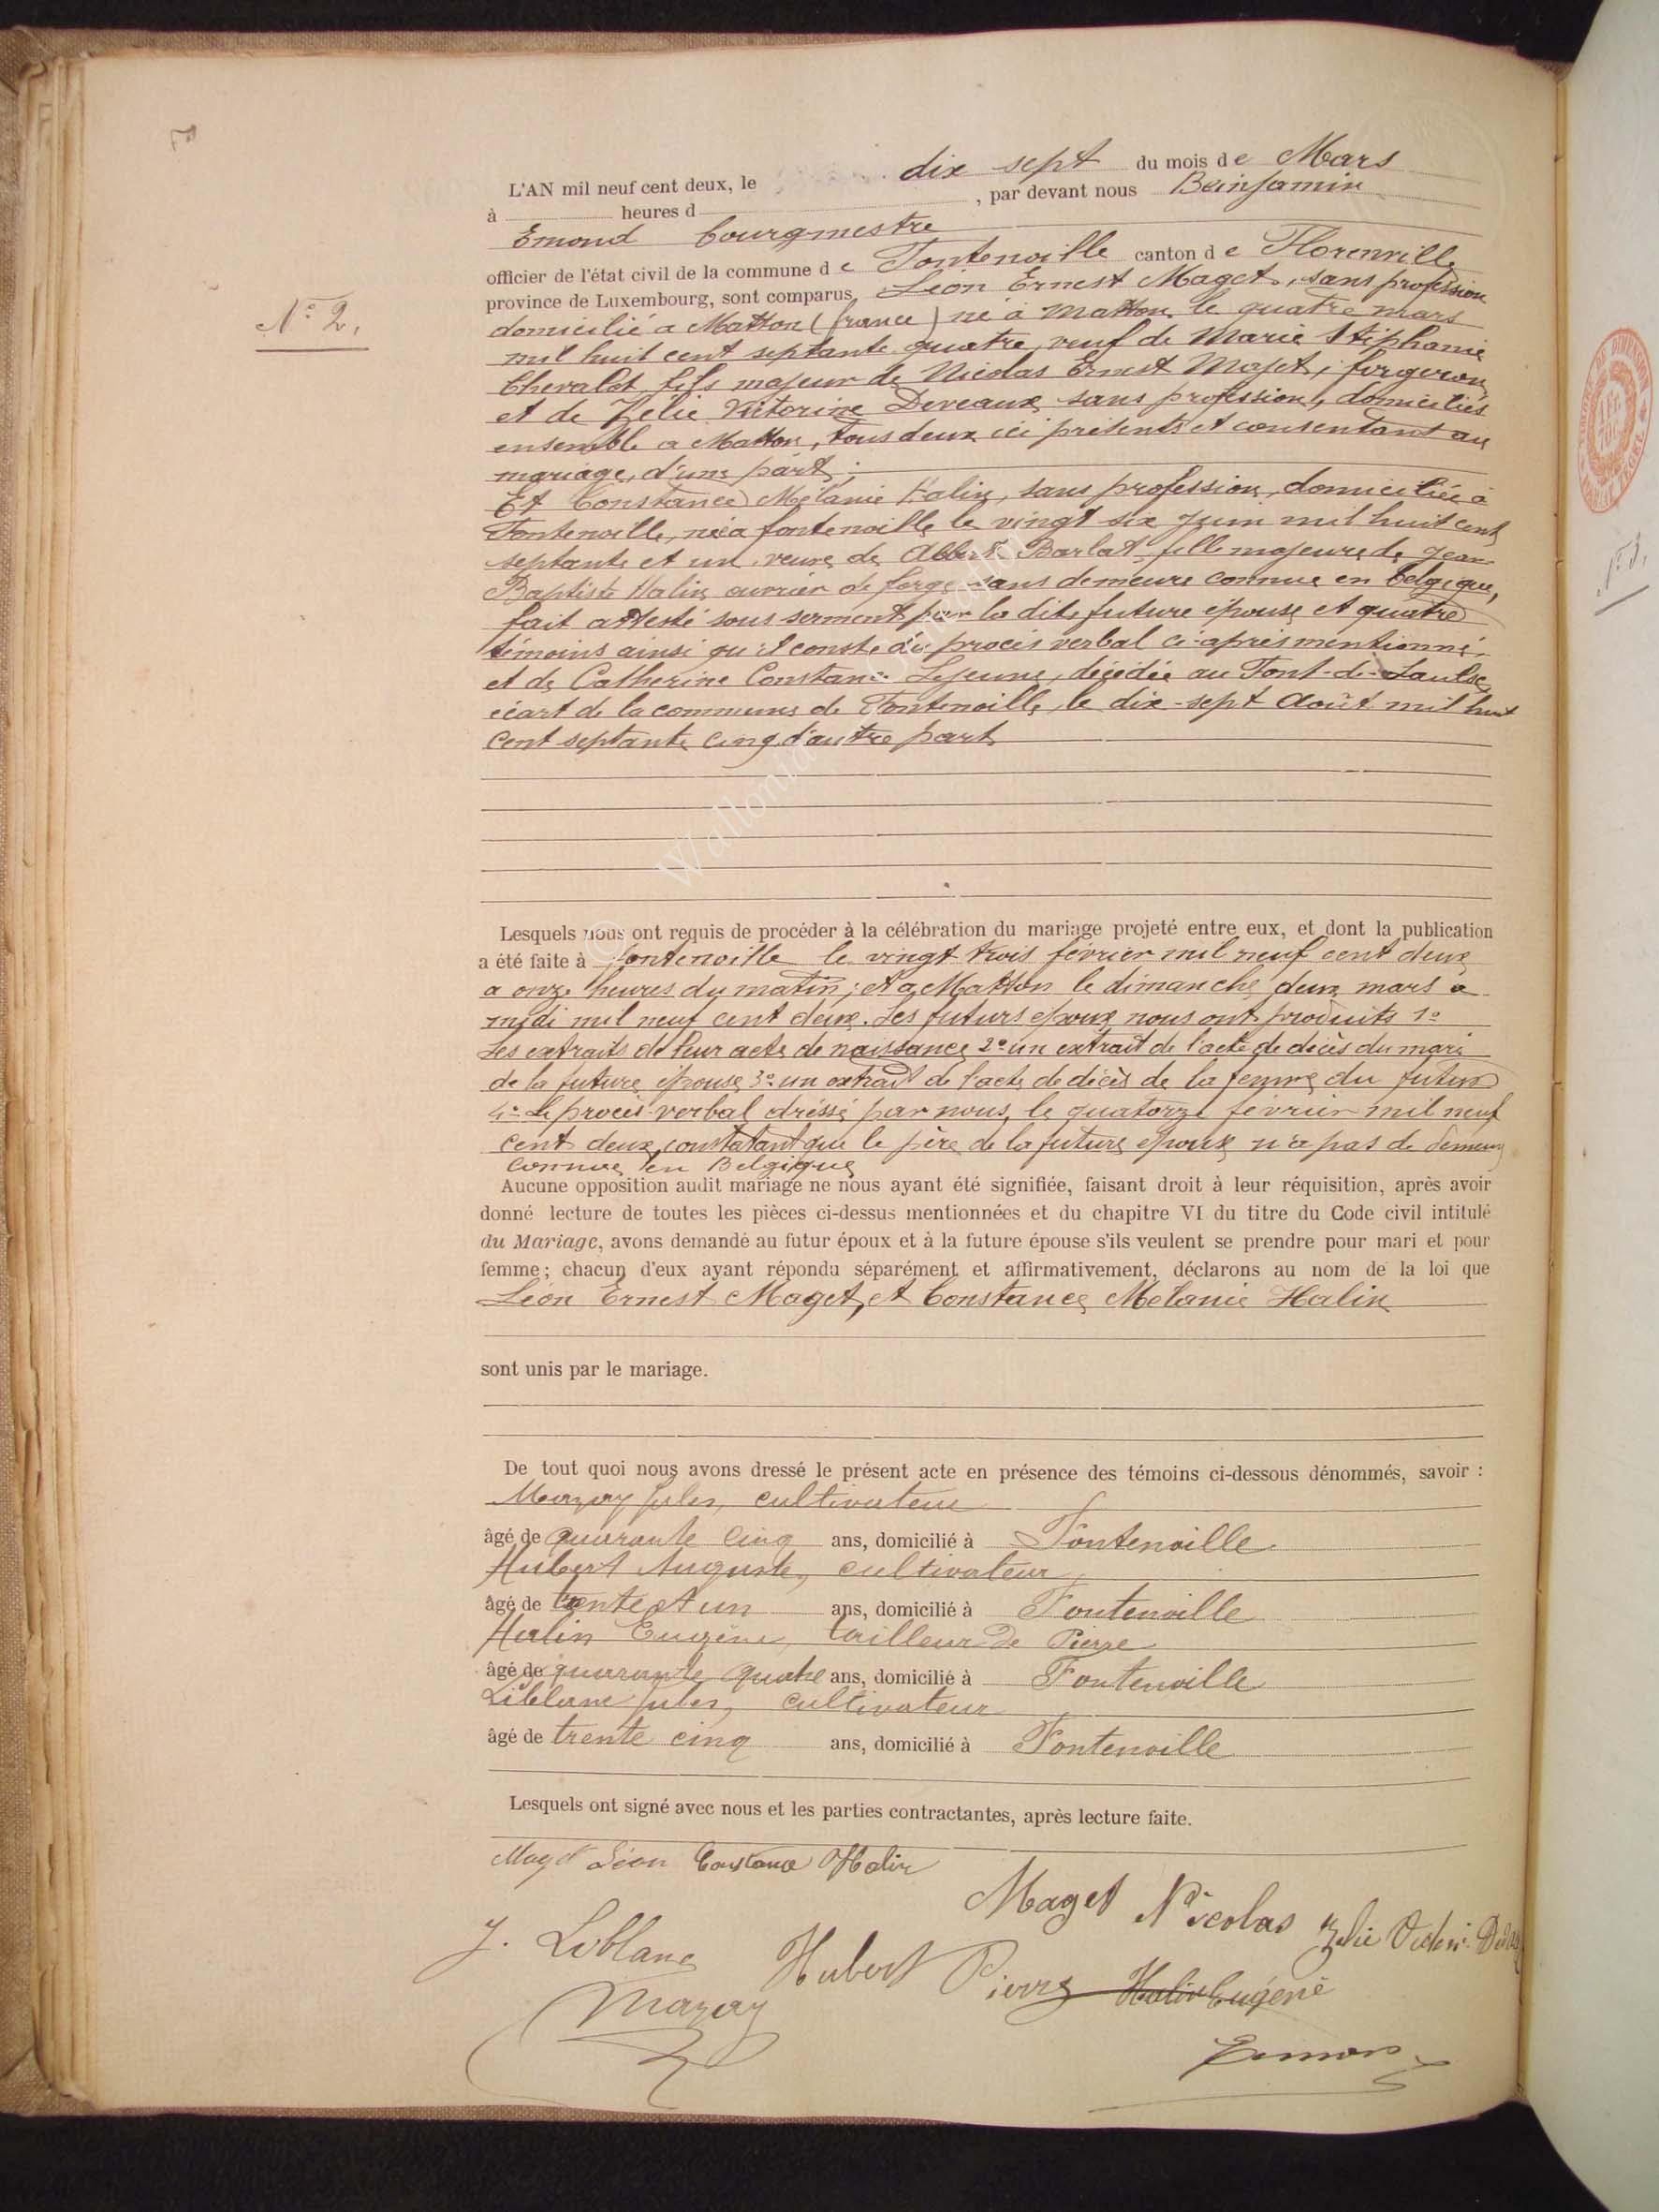 L'AN mil neuf cent deux, le dix sept du mois de Mars
à heures d , par devant nous Beinjamin
Emond bourgmestre
officier de l'état civil de la commune de Fontenoille canton de Florenville
province de Luxembourg, sont comparus Léon Ernest Maget, sans profession
domicilié a Matton (france) né à Matton le quatre mars
mil huit cent septante quatre, veuf de Marie Stéphanie
Chevalot fils majeur de Nicolas Ernest Maget, forgeron
et de Zélie Victorine Deveaux sans profession, domiciliés
ensemble a Matton, tous deux ici présents et consentant au
mariage, d'une part;
Et Constance Mélanie Halin, sans profession, domiciliée à
Fontenoille, née a fontenoille le vingt six Juin mil huit cent
septante et un, veuve de Albert Barlat fille majeure de Jean
Baptiste Halin ouvrier de forge sans demeure connue en belgique,
fait attesté sous serment par la dite future épouse et quatre
témoins ainsi qu'il conste du procès verbal ci-après mentionné
et de Catherine Constance Lejeune, décédée au Font-de-Laulse
écart de la commune de Fontenoille, le dix-sept Août mil huit
cent septante cinq d'autre part
Lesquels nous ont requis de procéder à la célébration du mariage projeté entre eux, et dont la publication
a été faite à fontenoille le vingt trois février mil neuf cent deux
a onze heures du matin; et a Matton le dimanche deux mars a
midi mil neuf cent deux. Les futurs époux nous ont produits 1°
Les extraits de leur acte de naissance 2° un extrait de l'acte de décès du mari
de la future épouse 3° un extrait de l'acte de décès de la femme du futur
4° Le procès-verbal dréssé par nous, le quatorze février mil neuf
cent deux, constatant que le père de la future epoux n'a pas de demeure
connue en Belgique
Aucune opposition audit mariage ne nous ayant été signifiée, faisant droit à leur réquisition, après avoir
donné lecture de toutes les pièces ci-dessus mentionnées et du chapitre VI du titre du Code civil intitulé
du Mariage, avons demandé au futur époux et à la future épouse s'ils veulent se prendre pour mari et pour
femme; chacun d'eux ayant répondu séparément et affirmativement, déclarons au nom de la loi que
Léon Ernest Maget, et Constance Mélanie Halin
sont unis par le mariage.
De tout quoi nous avons dressé le présent acte en présence des témoins ci-dessous dénommés, savoir :
Mazay Jules, cultivateur
âgé de quarante cinq ans, domicilié à Fontenoille
Hubert Auguste, cultivateur
âgé de trente et un ans, domicilié à Fontenoille
Halin Eugène, tailleur de Pierre
âgé de quarante quatre ans, domicilié à Fontenoille
Leblanc Jules, cultivateur
âgé de trente cinq ans, domicilié à Fontenoille
Lesquels ont signé avec nous et les parties contractantes, après lecture faite.
Maget Léon Constance Halin
Maget Nicolas Zelie
J. Leblanc Hubert Pierre Halin Eugéne
Mazay
Emond
N° 2.